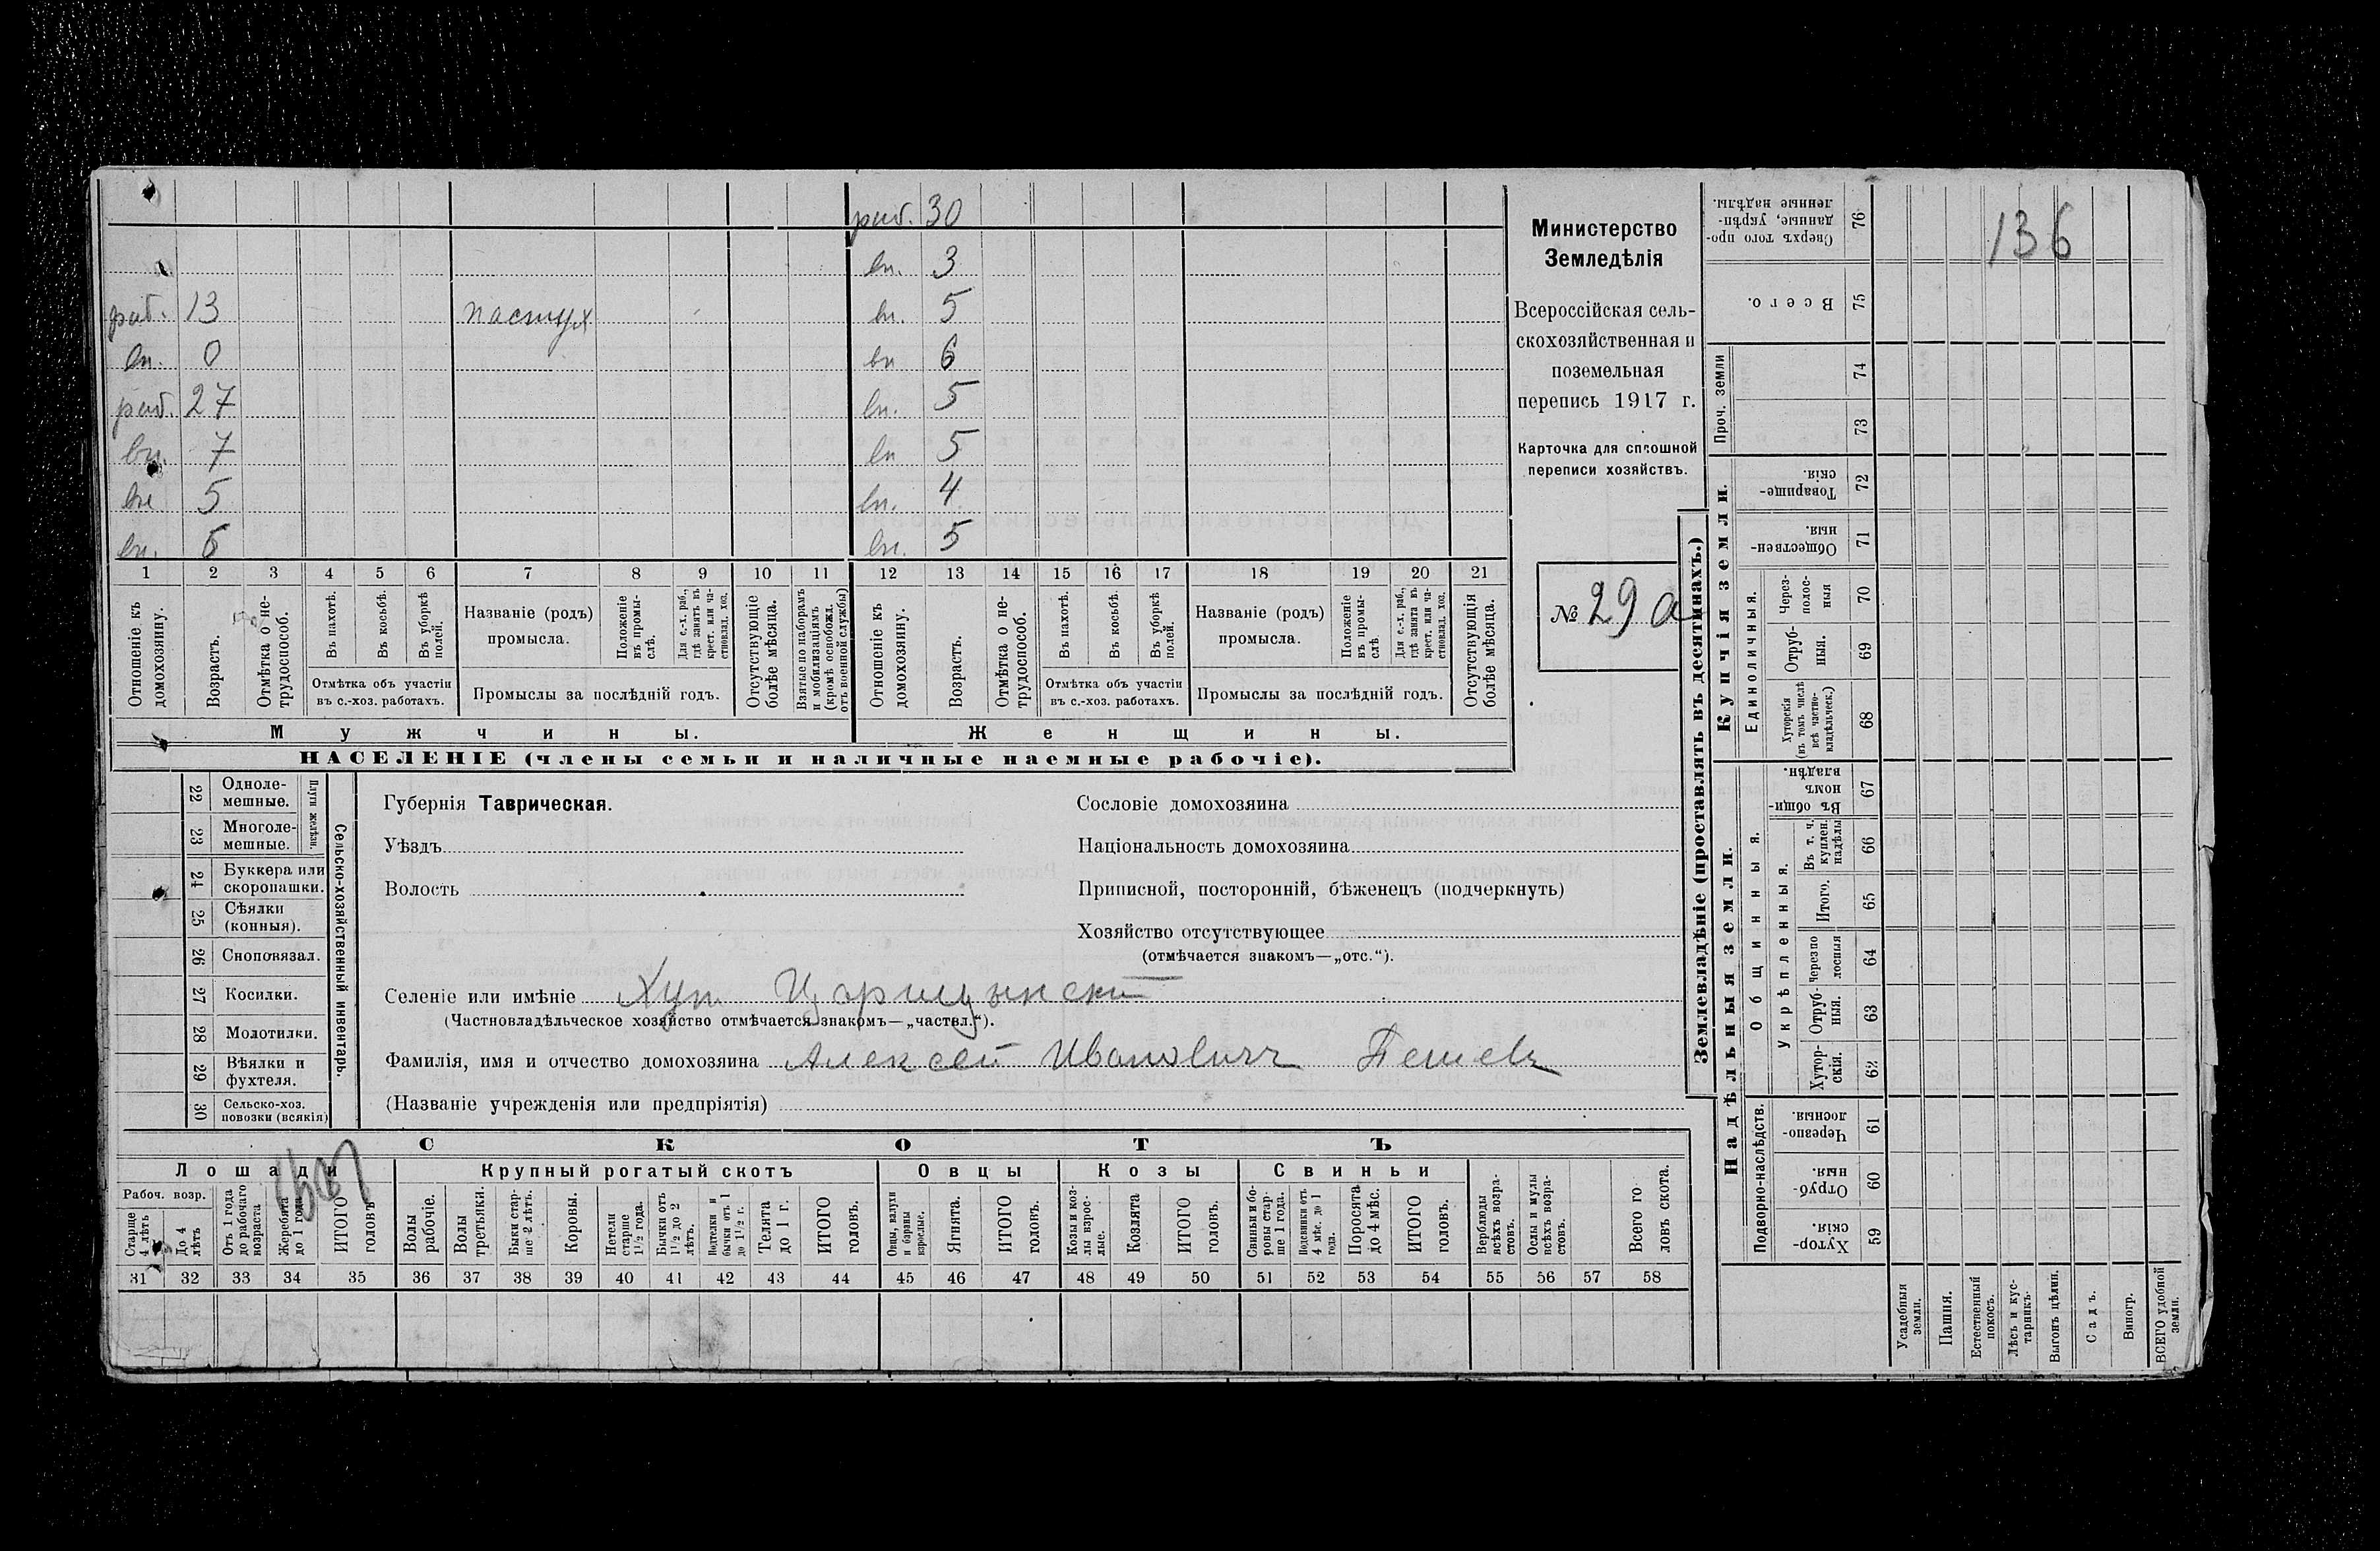 раб. 30
вн. 3
раб. 13 пастух вн. 5
вн. 0 вн 6
раб. 27 вн. 5
вн. 7 вн 5
вн 5 вн. 4
вн. 5 вн. 5
1 2 3 4 5 6 7 8 9 10 11 12 13 14 15 16 17 18 19 20 21
Отношеніе къ домохозяину.
Возрастъ.
Отмѣтка о не-трудоспособ.
Въ пахотѣ.
Въ косьбѣ.
Въ уборкѣ полей.
Отмѣтка объ участіи
въ с.-хоз. работахъ.
Названіе (родъ)
промысла.
Положеніе въ промы-слѣ.
Для с.-х. раб., гдѣ занятъ въ крест. или ча-стновлад. хоз.
Промыслы за послѣдній годъ.
Отсутствующіе болѣе мѣсяца.
Взятые по наборамъ и мобилизаціямъ (кромѣ освобожд. отъ военной службы)
Отношеніе къ домохозяину.
Возрастъ.
Отмѣтка о не-трудоспособ.
Въ пахотѣ.
Въ косьбѣ.
Въ уборкѣ полей.
Отмѣтка объ участіи
въ с.-хоз. работахъ.
Названіе (родъ)
промысла.
Положеніе въ промы-слѣ
Для с.-х. раб., гдѣ занята въ крест. или ча-стновлад. хоз.
Промыслы за послѣдній годъ.
Отсутствующія болѣе мѣсяца.
Мужчины. Женщины.
НАСЕЛЕНІЕ (члены семьи и наличные наемные рабочіе).
Министерство
Земледѣлія
Всероссійская сель-
скохозяйственная и
поземельная
перепись 1917 г.
Карточка для сплошной
переписи хозяйствъ.
№ 29 а
22 Одноле-мешные.
23 Многоле-мешные.
Плуги желѣзн.
24 Буккера или скоропашки.
25 Сѣялки (конныя).
26 Сноповязал.
27 Косилки.
28 Молотилки.
29 Вѣялки и фухтеля.
30 Сельско-хоз. повозки (всякія)
Сельско-хозяйственный инвентарь.
Губернія Таврическая.
Уѣздъ
Волость
Сословіе домохозяина
Національность домохозяина
Приписной, посторонній, бѣженецъ (подчеркнуть)
Хозяйство отсутствующее
(отмѣчается знакомъ—„отс.“).
Селеніе или имѣніе Хут Царицынски
(Частновладѣльческое хозяйство отмѣчается знакомъ—„частвл.“).
Фамилія, имя и отчество домохозяина Алексей Ивановичъ
(Названіе учрежденія или предпріятія)
СКОТЪ
Лошади Крупный рогатый скотъ Овцы Козы Свиньи
Рабоч. возр.
Старше 4 лѣтъ
До 4 лѣтъ
Отъ 1 года до рабочаго возраста
Жеребята до 1 года
ИТОГО головъ
Волы рабочіе.
Волы третьяки.
Быки стар-ше 2 лѣтъ.
Коровы.
Нетели старше 1½ года.
Бычки отъ 1½ до 2 лѣтъ.
Подтелки и бычки отъ 1 до 1½ г.
Телята до 1 г.
ИТОГО головъ.
Овцы, валухи и бараны взрослые.
Ягнята.
ИТОГО головъ.
Козы и коз-лы взрос-лые.
Козлята
ИТОГО головъ.
Свиньи и бо-ровы стар-ше 1 года.
Подсвинки отъ 4 мѣс. до 1 года.
Поросята до 4 мѣс.
ИТОГО головъ.
Верблюды всѣхъ возра-стовъ.
Ослы и мулы всѣхъ возра-стовъ.
Всего го ловъ скота.
31 32 33 34 35 36 37 38 39 40 41 42 43 44 45 46 47 48 49 50 51 52 53 54 55 56 57 58
Землевладѣніе (проставлять въ десятинахъ.)
136
Сверхъ того про-данные, укрѣп-ленные надѣлы. 76
Всего. 75
Проч. земли
74
73
Купчія земли.
Товарище-скія. 72
Обществен-ныя. 71
Единоличныя.
Через-полос-ныя 70
Отруб-ныя. 69
Хуторскія (въ томъ числѣ всѣ частно-владѣльческ.) 68
Надѣльныя земли.
Общинныя.
Въ общин-номъ владѣн. 67
Укрѣпленныя.
Въ т. ч. куплен. надѣлы 66
Итого. 65
Черезпо лосныя 64
Отруб-ныя. 63
Хутор-скія. 62
Подворно-наслѣдств.
Черезпо-лосныя. 61
Отруб-ныя. 60
Хутор-скія. 59
Усадебныя земли.
Пашня.
Естественный покосъ.
Лѣсъ и кус-тарникъ.
Выгонъ цѣлин.
Садъ.
Виногр.
ВСЕГО удобной земли.